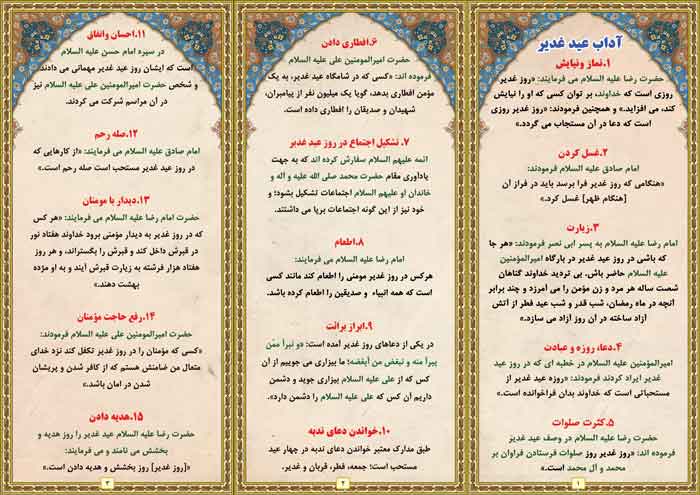 آداب عید غدیر
۱.نماز ونیایش
حضرت رضا علیه السلام می فرمایند: «روز غدیر
روزی است که خداوند، بر توان کسی که او را نیایش
کند، می افزاید.» و همچنین فرمودند: «روز غدیر روزی
است که دعا در آن مستجاب می گردد.»
۲.غسل کردن
امام صادق علیه السلام فرمودند:
«هنگامی که روز غدیر فرا برسد باید در فراز آن
[هنگام ظهر] غسل کرد.»
۳.زیارت
امام رضا علیه السلام به پسر ابی نصر فرمودند: «هر جا
که باشی در روز غدیر در بارگاه امیرالمؤمنین
علیه السلام حاضر باش. بی تردید خداوند گناهان
شصت ساله هر مرد و زن مؤمن را می آمرزد و چند برابر
آنچه در ماه رمضان، شب قدر و شب عید فطر از آتش
آزاد ساخته در آن روز آزاد می سازد.»
۴.دعا، روزه و عبادت
امیرالمؤمنین علیه السلام در خطبه ای که در روز عید
غدیر ایراد کردند فرمودند: «روزه عید غدیر از
مستحباتی است که خداوند بدان فراخوانده است.»
۵.کثرت صلوات
حضرت رضا علیه السلام در وصف عید غدیر
فرموده اند: «روز غدیر روز صلوات فرستادن فراوان بر
محمد و آل محمد است.»
۱
۶.افطاری دادن
حضرت امیرالمومنین علی علیه السلام
فرموده اند: «کسی که در شامگاه عید غدیر، به یک
مؤمن افطاری بدهد، گویا یک میلیون نفر از پیامبران،
شهیدان و صدیقان را افطاری داده است.
۷. تشکیل اجتماع در روز عید غدیر
ائمه علیهم السلام سفارش کرده اند که به جهت
یادآوری مقام حضرت محمد صلی الله علیه و آله و
خاندان او علیهم السلام اجتماعات تشکیل بشود؛ و
خود نیز از این گونه اجتماعات برپا می داشتند.
۸.اطعام
امام رضا علیه السلام می فرمایند:
هرکس در روز غدیر مومنی را اطعام کند مانند کسی
است که همه انبیاء و صدیقین را اطعام کرده باشد.
۹.ابراز برائت
در یکی از دعاهای روز غدیر آمده است: «و نبرأ ممّن
یبرأ منه و نبغض من أبغضه؛ ما بیزاری می جوییم از آن
کس که از علی علیه السلام بیزاری جوید و دشمن
داریم آن کس که علی علیه السلام را دشمن دارد».
۱۰.خواندن دعای ندبه
طبق مدارک معتبر خواندن دعای ندبه در چهار عید
مستحب است؛ جمعه، فطر، قربان و غدیر.
۲
۱۱.احسان وانفاق
در سیره امام حسن علیه السلام
است که ایشان روز عید غدیر مهمانی می دادند
و شخص حضرت امیرالمؤمنین علی علیه السلام نیز
در آن مراسم شرکت می کردند.
۱۲.صله رحم
امام صادق علیه السلام می فرمایند: «از کارهایی که
در روز عید غدیر مستحب است صله رحم است.»
۱۳.دیدار با مومنان
حضرت امام رضا علیه السلام می فرمایند: «هر کس
که در روز غدیر به دیدار مؤمنی برود خداوند هفتاد نور
در قبرش داخل کند و قبرش را بگستراند، و هر روز
هفتاد هزار فرشته به زیارت قبرش آیند و به او مژده
بهشت دهند.»
۱۴.رفع حاجت مؤمنان
حضرت امیرالمومنین علی علیه السلام فرمودند:
«کسی که مؤمنان را در روز غدیر تکفل کند نزد خدای
متعال من ضامنش هستم که از کافر شدن و پریشان
شدن در امان باشد.»
۱۵.هدیه دادن
حضرت رضا علیه السلام عید غدیر را روز هدیه و
بخشش می نامند و می فرمایند:
«[روز غدیر] روز بخشش و هدیه دادن است.»
۳